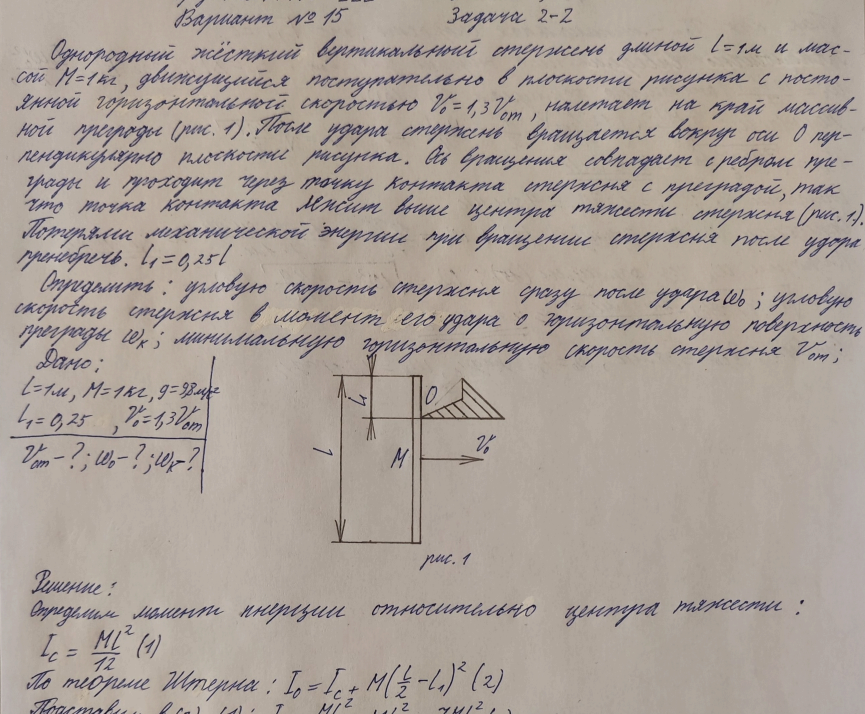 Вариант № 15 Задача 2-2
Однородный жёсткий вертикальный стержень длиной l=1м и мас-
сой M=1кг, движущийся поступательно в плоскости рисунка с посто-
янной горизонтальной скоростью V₀=1,3V₀m, налетает на край массив-
ной преграды (рис. 1). После удара стержень вращается вокруг оси О пер-
пендикулярно плоскости рисунка. Ось вращения совпадает с ребром пре-
грады и проходит через точку контакта стержня с преградой, так
что точка контакта лежит выше центра тяжести стержня (рис. 1).
Потерями механической энергии при вращении стержня после удара
пренебречь. l₁=0,25l
Определить: угловую скорость стержня сразу после удара ω₀; угловую
скорость стержня в момент его удара о горизонтальную поверхность
преграды ωк; минимальную горизонтальную скорость стержня V₀m;
Дано:
l=1м, M=1кг, g=9,8м/с²
l₁=0,25 , V₀=1,3V₀m
V₀m-?; ω₀-?; ωк-?
l₁ O
l M V₀
рис. 1
Решение:
Определим момент инерции относительно центра тяжести:
I_c = Ml²/12 (1)
По теореме Штерна: I₀=I_c+M(l/2-l₁)² (2)